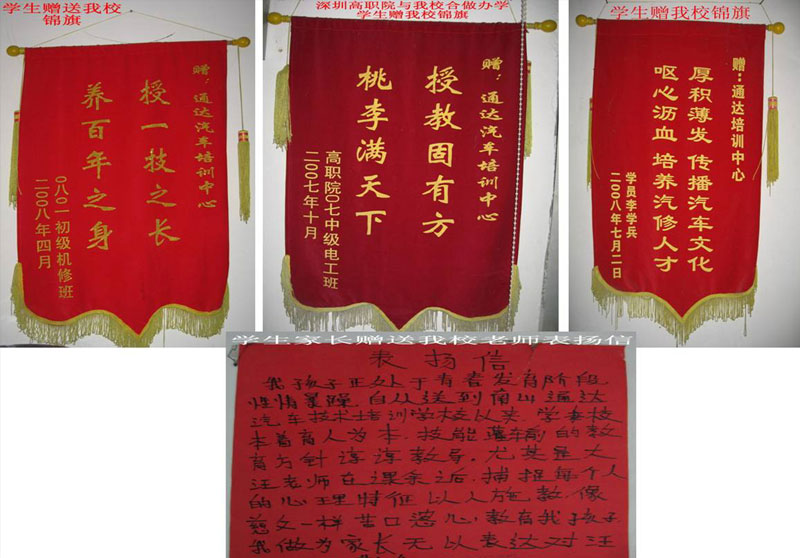 学生赠送我校
锦旗
赠：通达汽车培训中心
授一技之长
养百年之身
0八0一初级机修班
二00八年四月
深圳高职院与我校合做办学
学生赠我校锦旗
赠：通达汽车培训中心
授教固有方
桃李满天下
高职院0七中级电工班
二00七年十月
学生赠我校锦旗
赠：通达培训中心
厚积薄发 传播汽车文化
呕心沥血 培养汽修人才
学员李学兵
二00八年七月二日
学生家长赠送我校老师表扬信
表扬信
我孩子正处于青春发育阶段
性情暴躁 自从送到南山通达
汽车技术培训学校以来，学校
本着育人为本，技能的教
育方针谆谆教导，尤其是
汪老师在课余之后，捕捉每个人
的心理特征以人施教，像
慈父一样苦口婆心，教育我孩子
我做为家长无以表达对汪